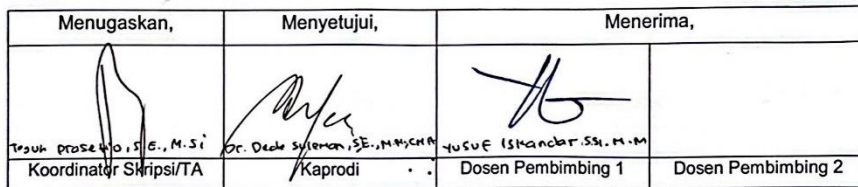 Menugaskan, Menyetujui, Menerima,
Teguh Prasetyo, S.E., M.Si Dr. Dede Suleman, S.E., M.M, CMA Yusuf Iskandar. S.Si. M.M
Koordinator Skripsi/TA Kaprodi Dosen Pembimbing 1 Dosen Pembimbing 2